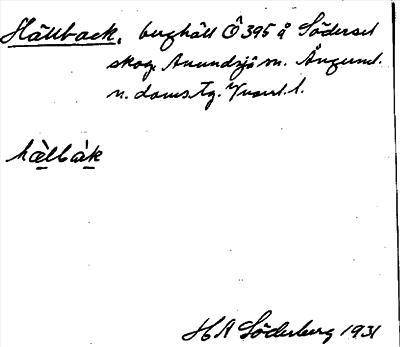 Hällback, berghäll Ö 395 å Södersel
skog, Anundsjö sn. Ångerml.
n. doms.tg. Vnorrl. l.
hälbàk
H A Söderberg 1931